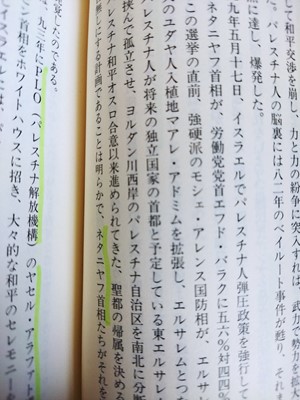 て和平交渉を崩し、力と力の紛争に突入すれば、武力で勢力を拡
に達し、爆発した。
た。パレスチナ人の脳裏には八二年のベイルート事件が甦り、それま
九年五月十七日、イスラエルでパレスチナ人弾圧政策を強行して
ネタニヤフ首相が、労働党党首エフド・バラクに五六%対四四%
この選挙の直前、強硬派のモシェ・アレンス国防相が、エルサレ
のユダヤ人入植地マアレ・アドミムを拡張し、エルサレムとつ
パレスチナ人が将来の独立国家の首都と予定している東エルサレ
挟んで孤立させ、ヨルダン川西岸のパレスチナ自治区を南北に分断
パレスチナ和平オスロ合意以来進められてきた、聖都の帰属を決める
無しにする計画であることは明らかで、ネタニヤフ首相たちがそれを
覚したのである。
、九三年にPLO(パレスチナ解放機構)のヤセル・アラファト
と首相をホワイトハウスに招き、大々的な和平のセレモニーを